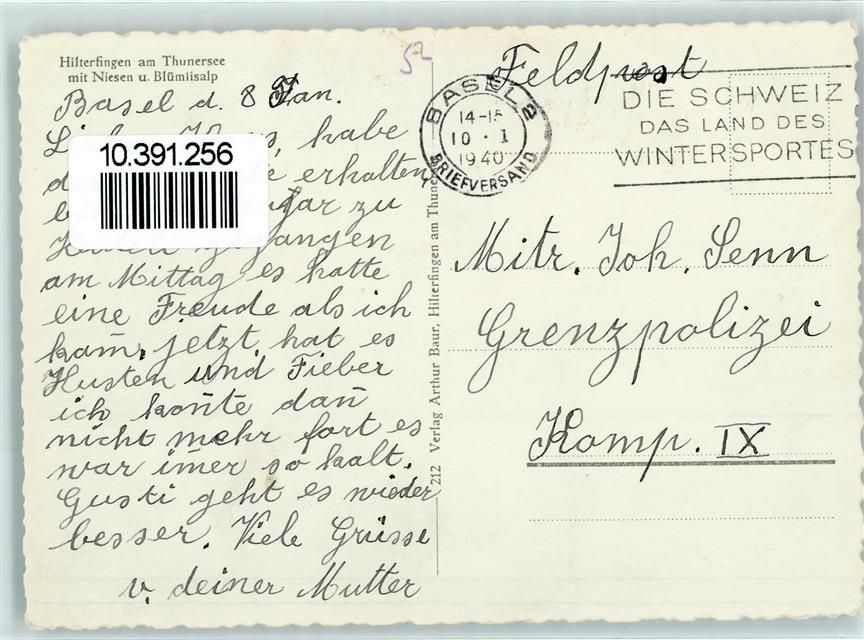 Hilterfingen am Thunersee
mit Niesen u. Blümlisalp
Basel d. 8 Jan.
habe
10.391.256
erhalten
zu
gegangen
am Mittag es hatte
eine Freude als ich
kam̄, jetzt hat es
Husten und Fieber
ich kon̄te dan̄
nicht mehr fort es
war im̄er so kalt.
Gusti geht es wieder
besser. Viele Grüsse
v. deiner Mutter
212 Verlag Arthur Baur, Hilterfingen am Thunersee
52
Feldpost
BASEL 2
14-15
10 · I
1940
BRIEFVERSAND
DIE SCHWEIZ
DAS LAND DES
WINTERSPORTES
Mitr. Joh. Senn
Grenzpolizei
Komp. IX